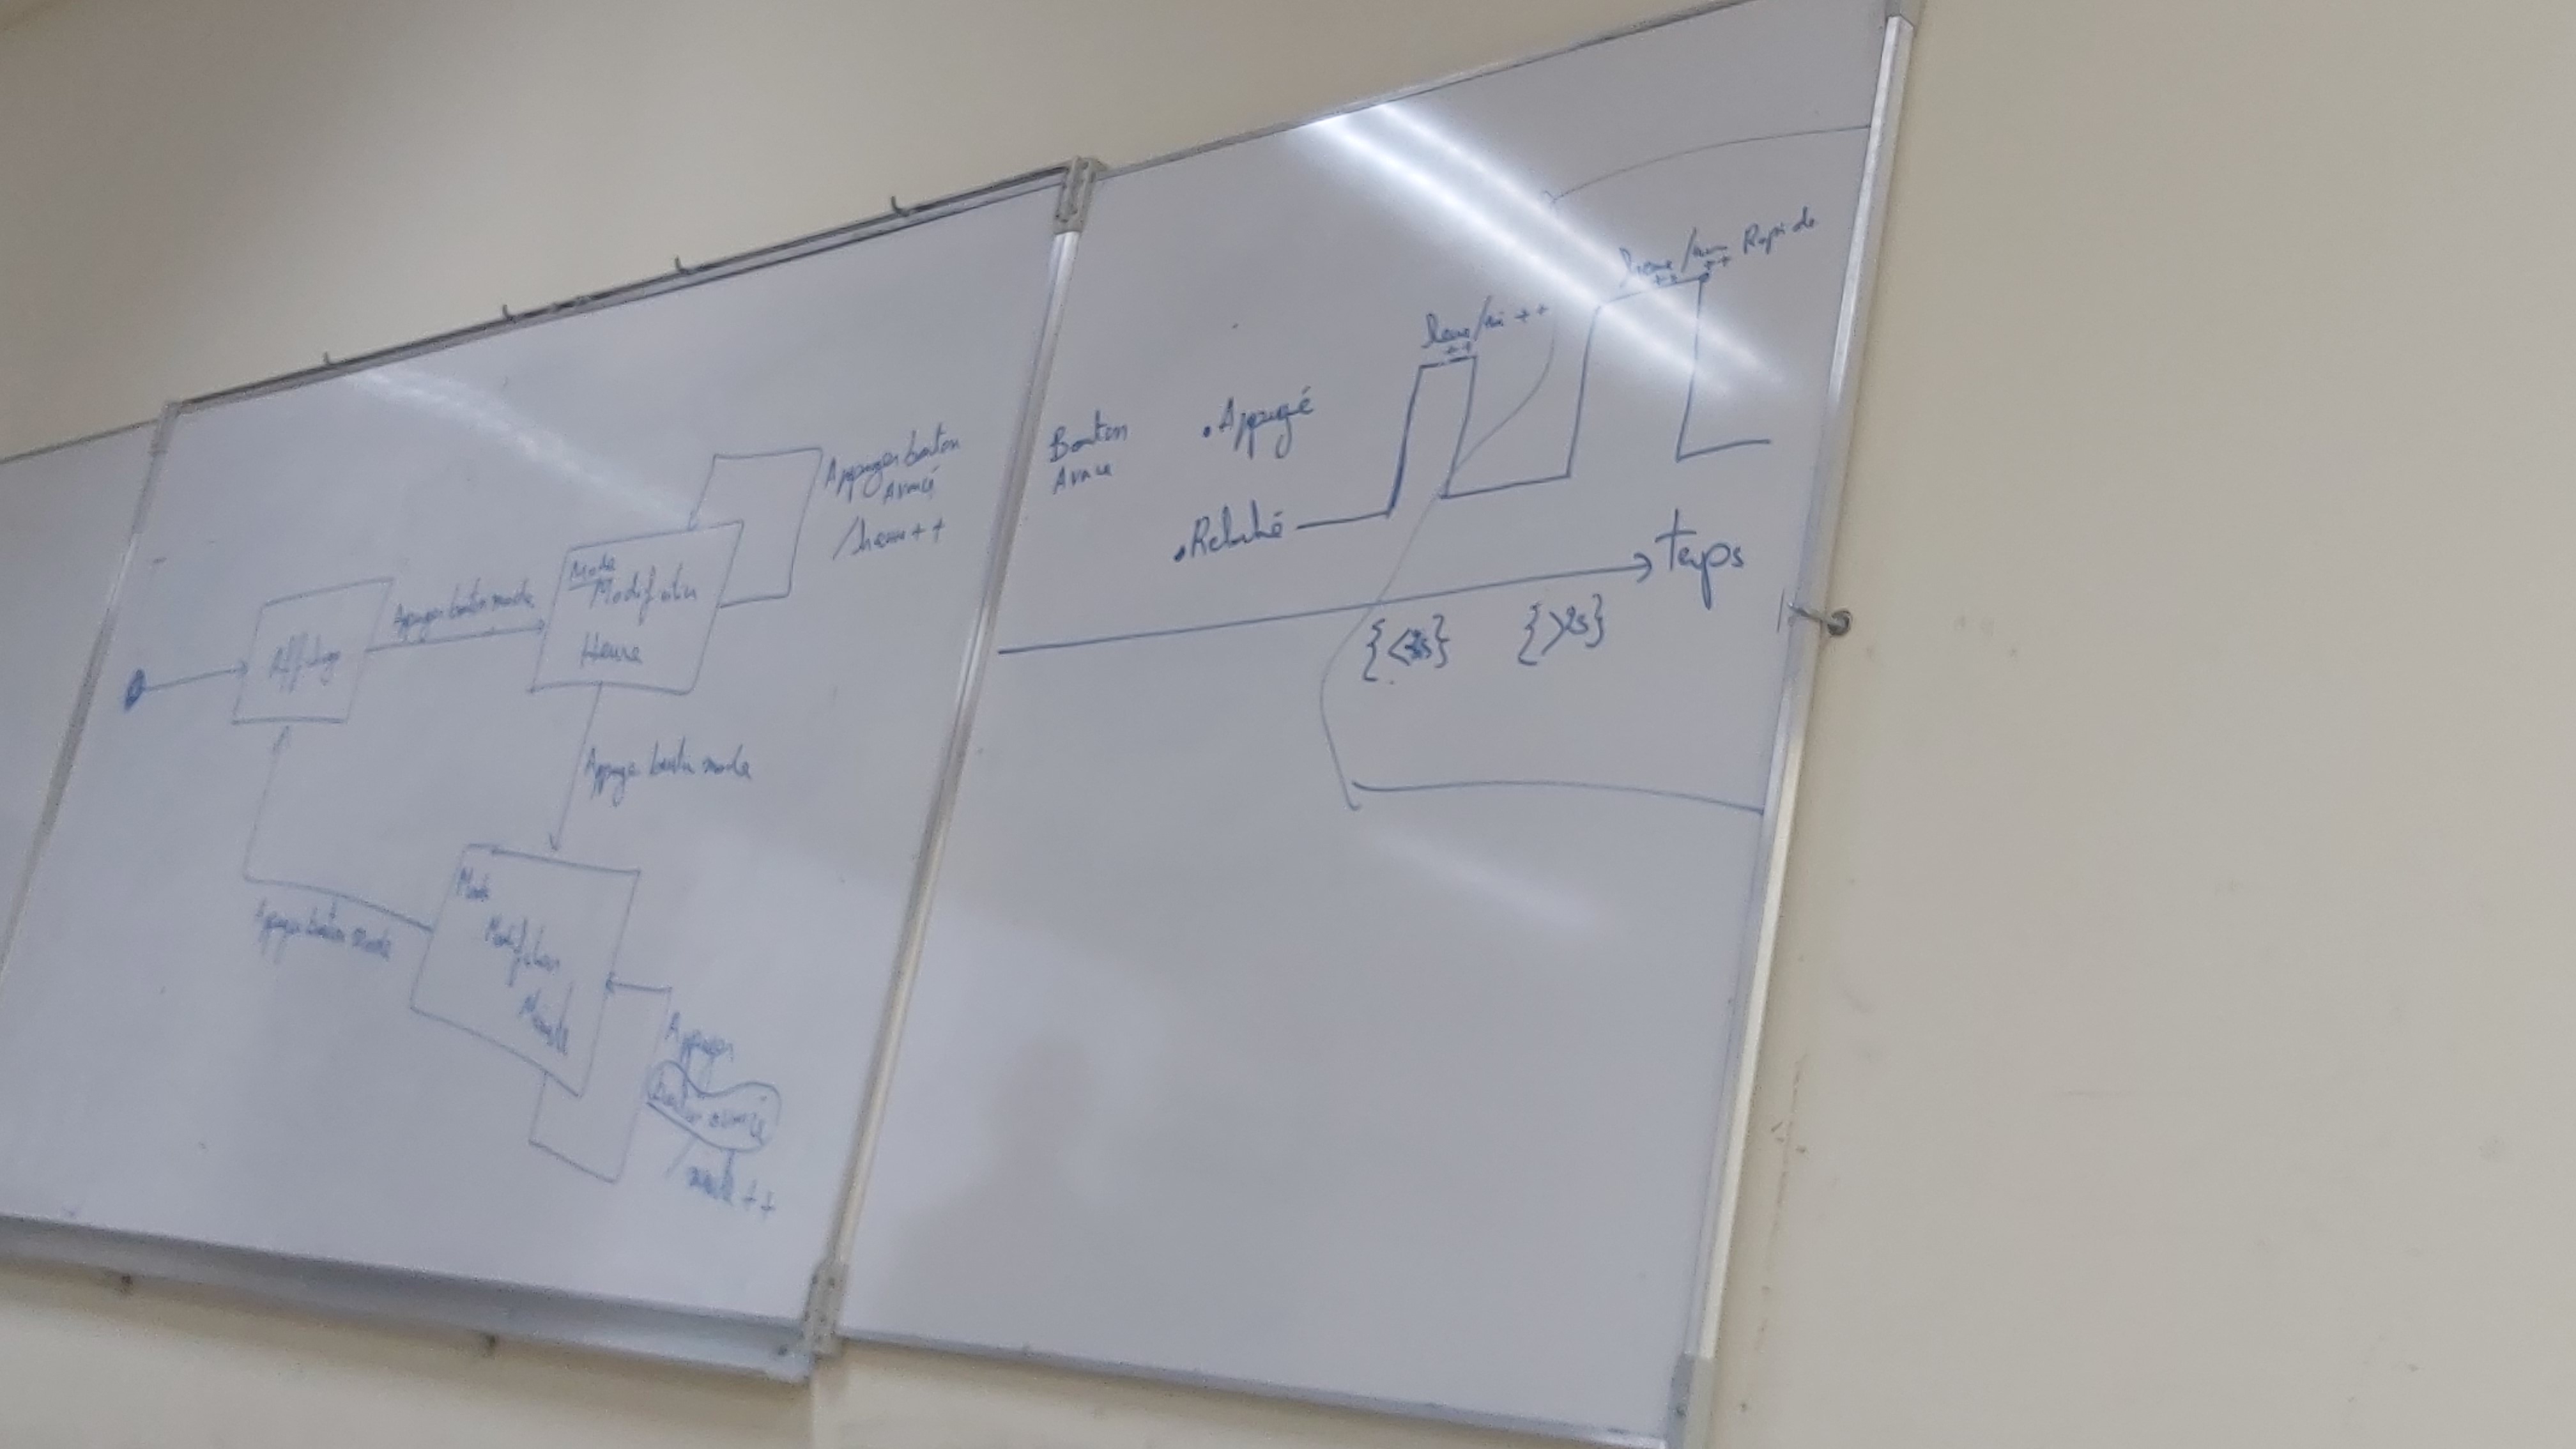 Affichage
Appuyer bouton mode
Mode
Modification
Heure
Appuyer bouton
Avancé
/heure++
Appuyer bouton mode
Mode
Modification
Minute
Appuyer bouton mode
Appuyer
bouton avancé
/
minute ++
Bouton
Avance
• Appuyé
• Relaché
heure/min ++
++
heure/min Rapide
++ ++
temps
{<2s}
{>2s}